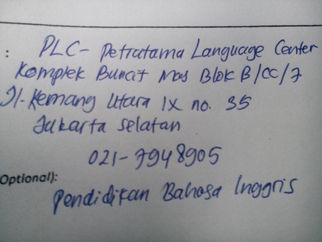 : PLC - Petratama Language Center
Komplek Buncit Mas Blok B/CC/7
Jl. Kemang Utara IX no. 35
Jakarta Selatan
021-7948905
Optional):
Pendidikan Bahasa Inggris